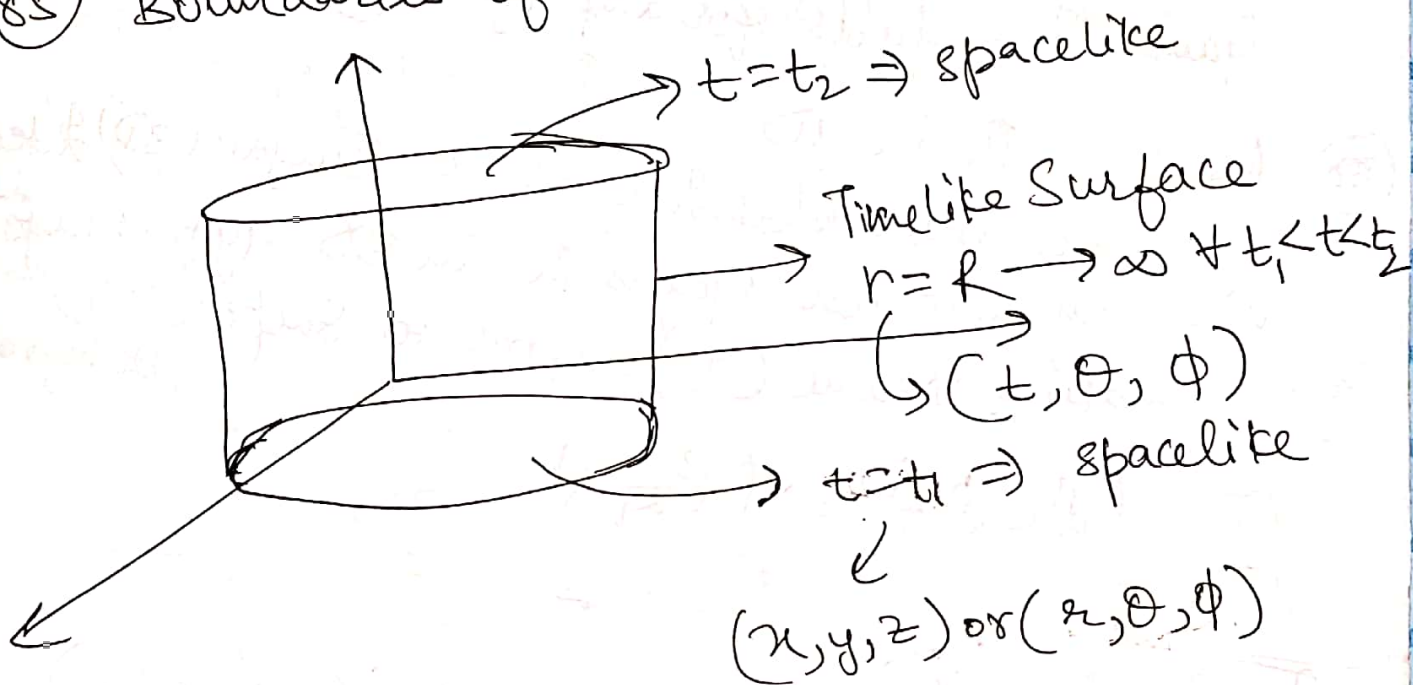 85) Boundaries of
t = t₂ ⇒ spacelike
Timelike Surface
r = R → ∞ ∀ t₁<t<t₂
(t, θ, φ)
t = t₁ ⇒ spacelike
(x, y, z) or (r, θ, φ)